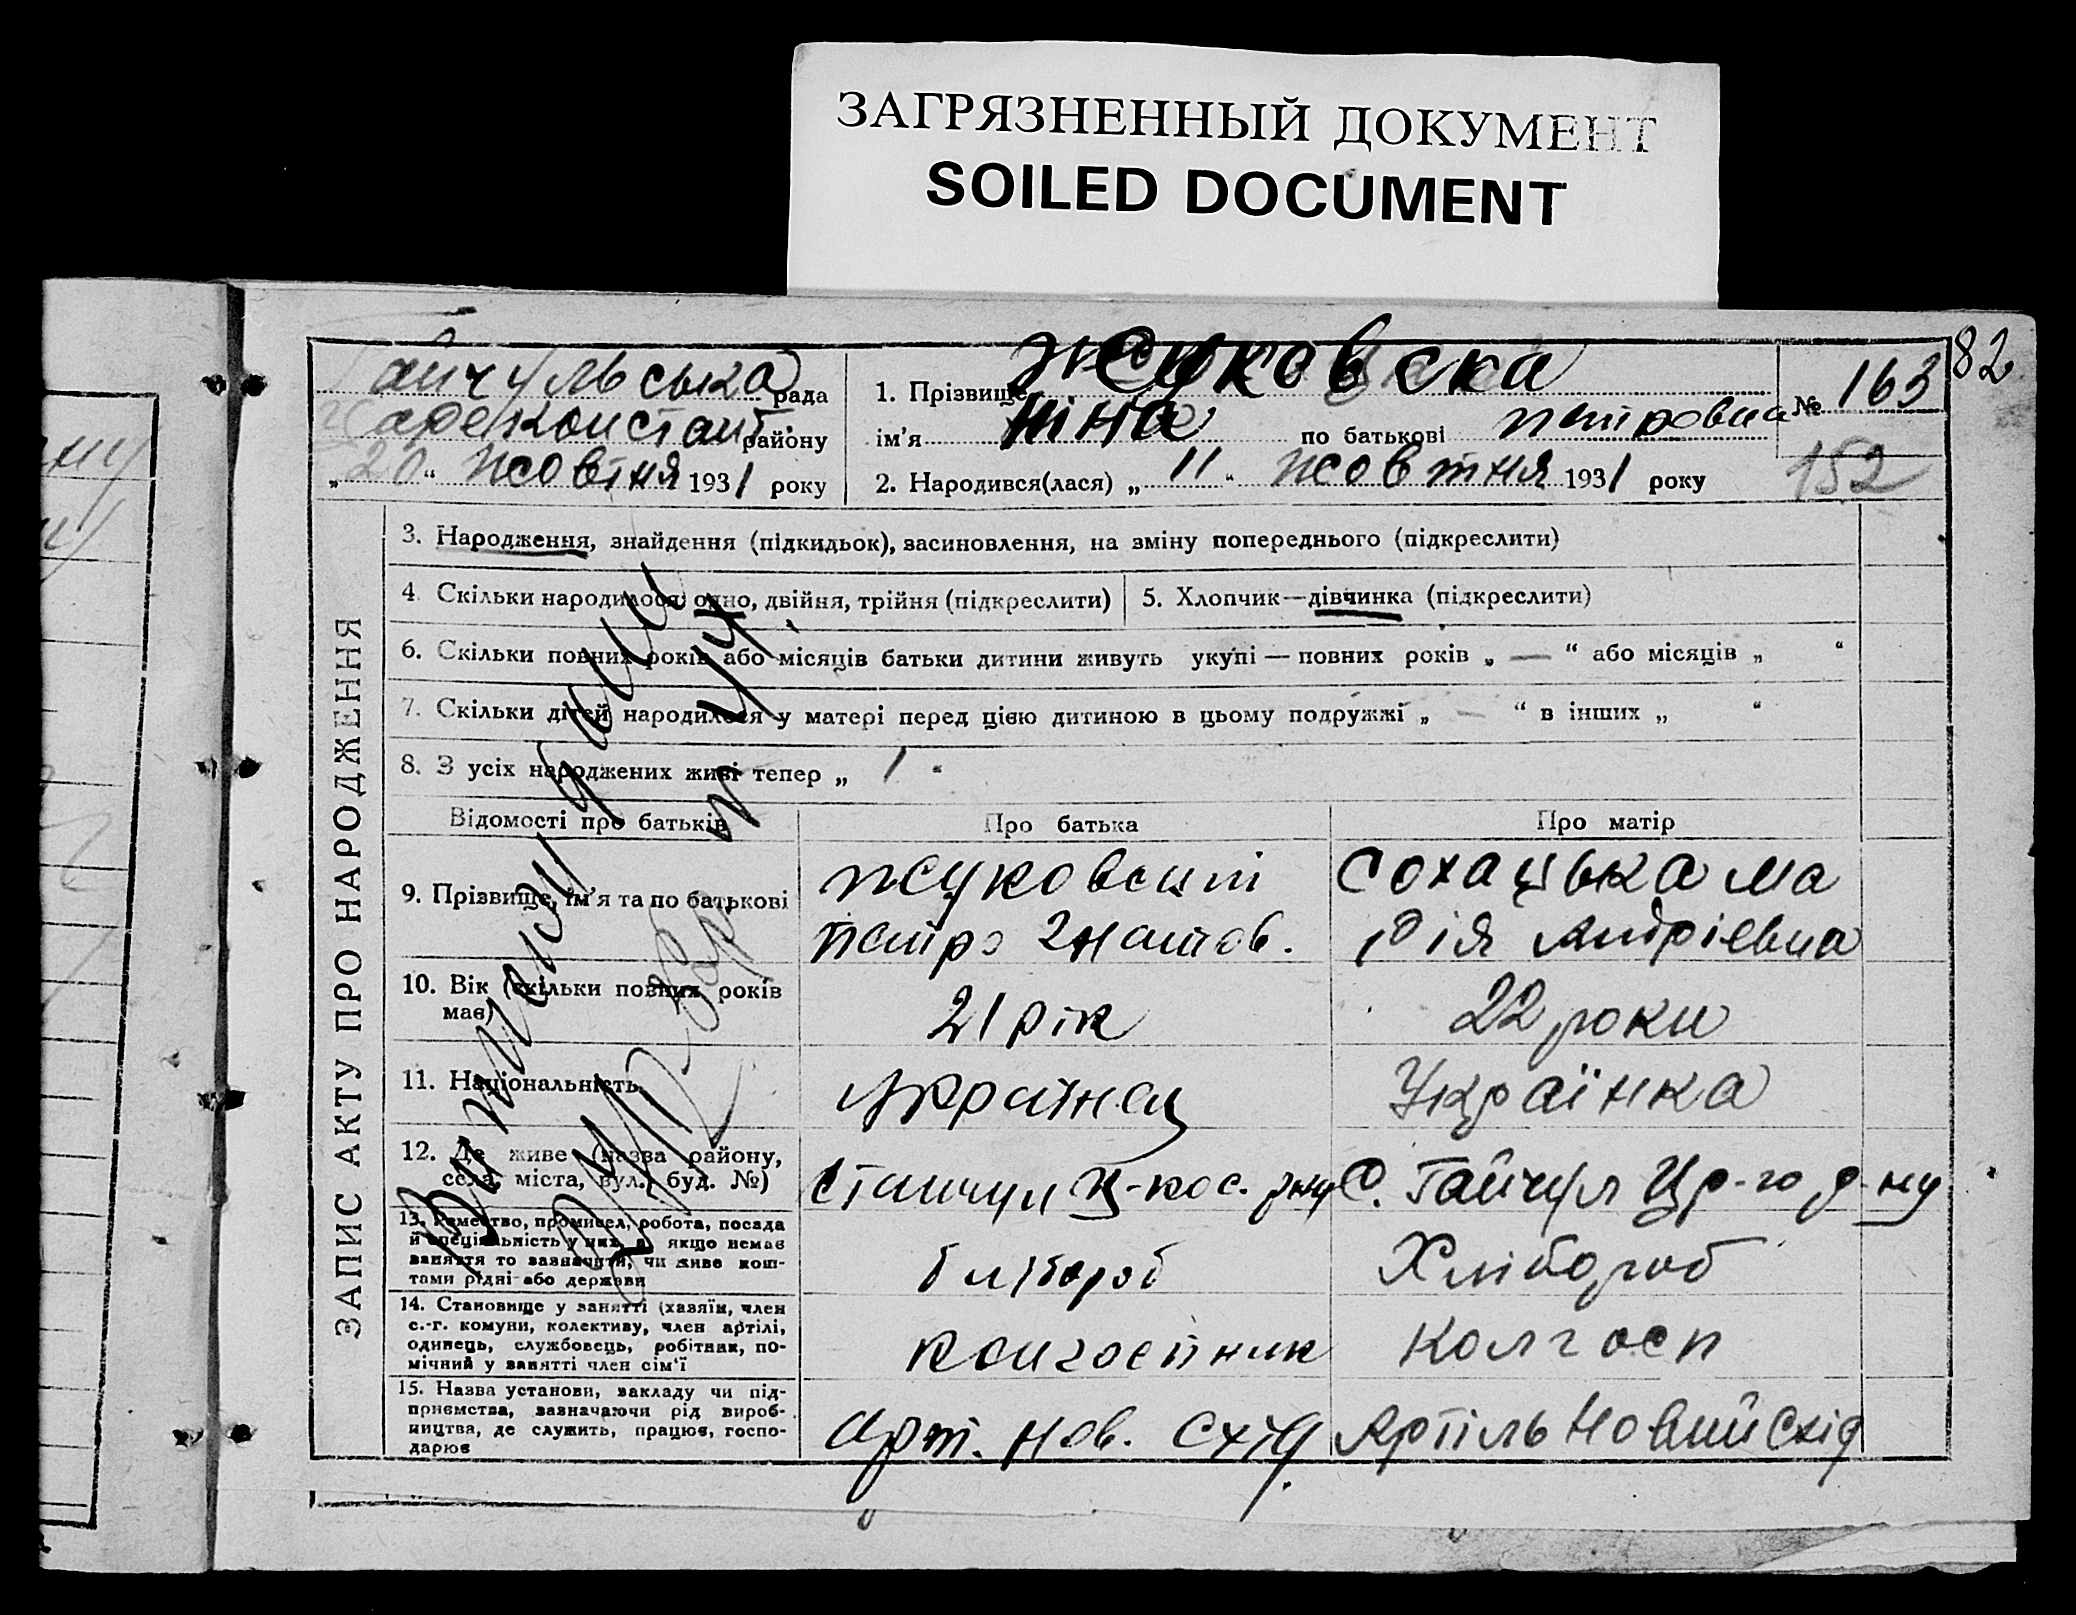 ЗАГРЯЗНЕННЫЙ ДОКУМЕНТ
SOILED DOCUMENT
82
Гайчульська рада
Царекостант. району
„20“ жовтня 1931 року
1. Прізвище Жуковска
ім'я Ніна по батькові Петровна
2. Народився(лася) „11“ жовтня 1931 року
№ 163
152
ЗАПИС АКТУ ПРО НАРОДЖЕННЯ
3. Народження, знайдення (підкидьок), засиновлення, на зміну попереднього (підкреслити)
4. Скільки народилося: одно, двійня, трійня (підкреслити)
5. Хлопчик—дівчинка (підкреслити)
6. Скільки повних років або місяців батьки дитини живуть укупі — повних років „ — “ або місяців „ “
7. Скільки дітей народилося у матері перед цією дитиною в цьому подружжі „ — “ в інших „ “
8. З усіх народжених живі тепер „ 1 “
Відомості про батьків
Про батька
Про матір
9. Прізвище, ім'я та по батькові
Жуковский
Петро Игнатов.
Сохацька Ма
рія Андріевна
10. Вік (скільки повних років
має)
21 рік
22 роки
11. Національність
Українец
Українка
12. Де живе (назва району,
села, міста, вул., буд. №)
Ц-кос. р-ну
с. Гайчул Цр-го р-ну
13. Ремество, промисел, робота, посада
й спеціяльність у них, а якщо немає
заняття то зазначити, чи живе кош-
тами рідні або держави
хлібороб
Хлібороб
14. Становище у занятті (хазяїн, член
с.-г. комуни, колективу, член артілі,
одинець, службовець, робітник, по-
мічний у занятті член сім'ї
колгоспник
колгосп
15. Назва установи, закладу чи під-
приємства, зазначаючи рід вироб-
ництва, де служить, працює, госпо-
дарює
Арт. Нов. Схід
Артіль Новий Схід